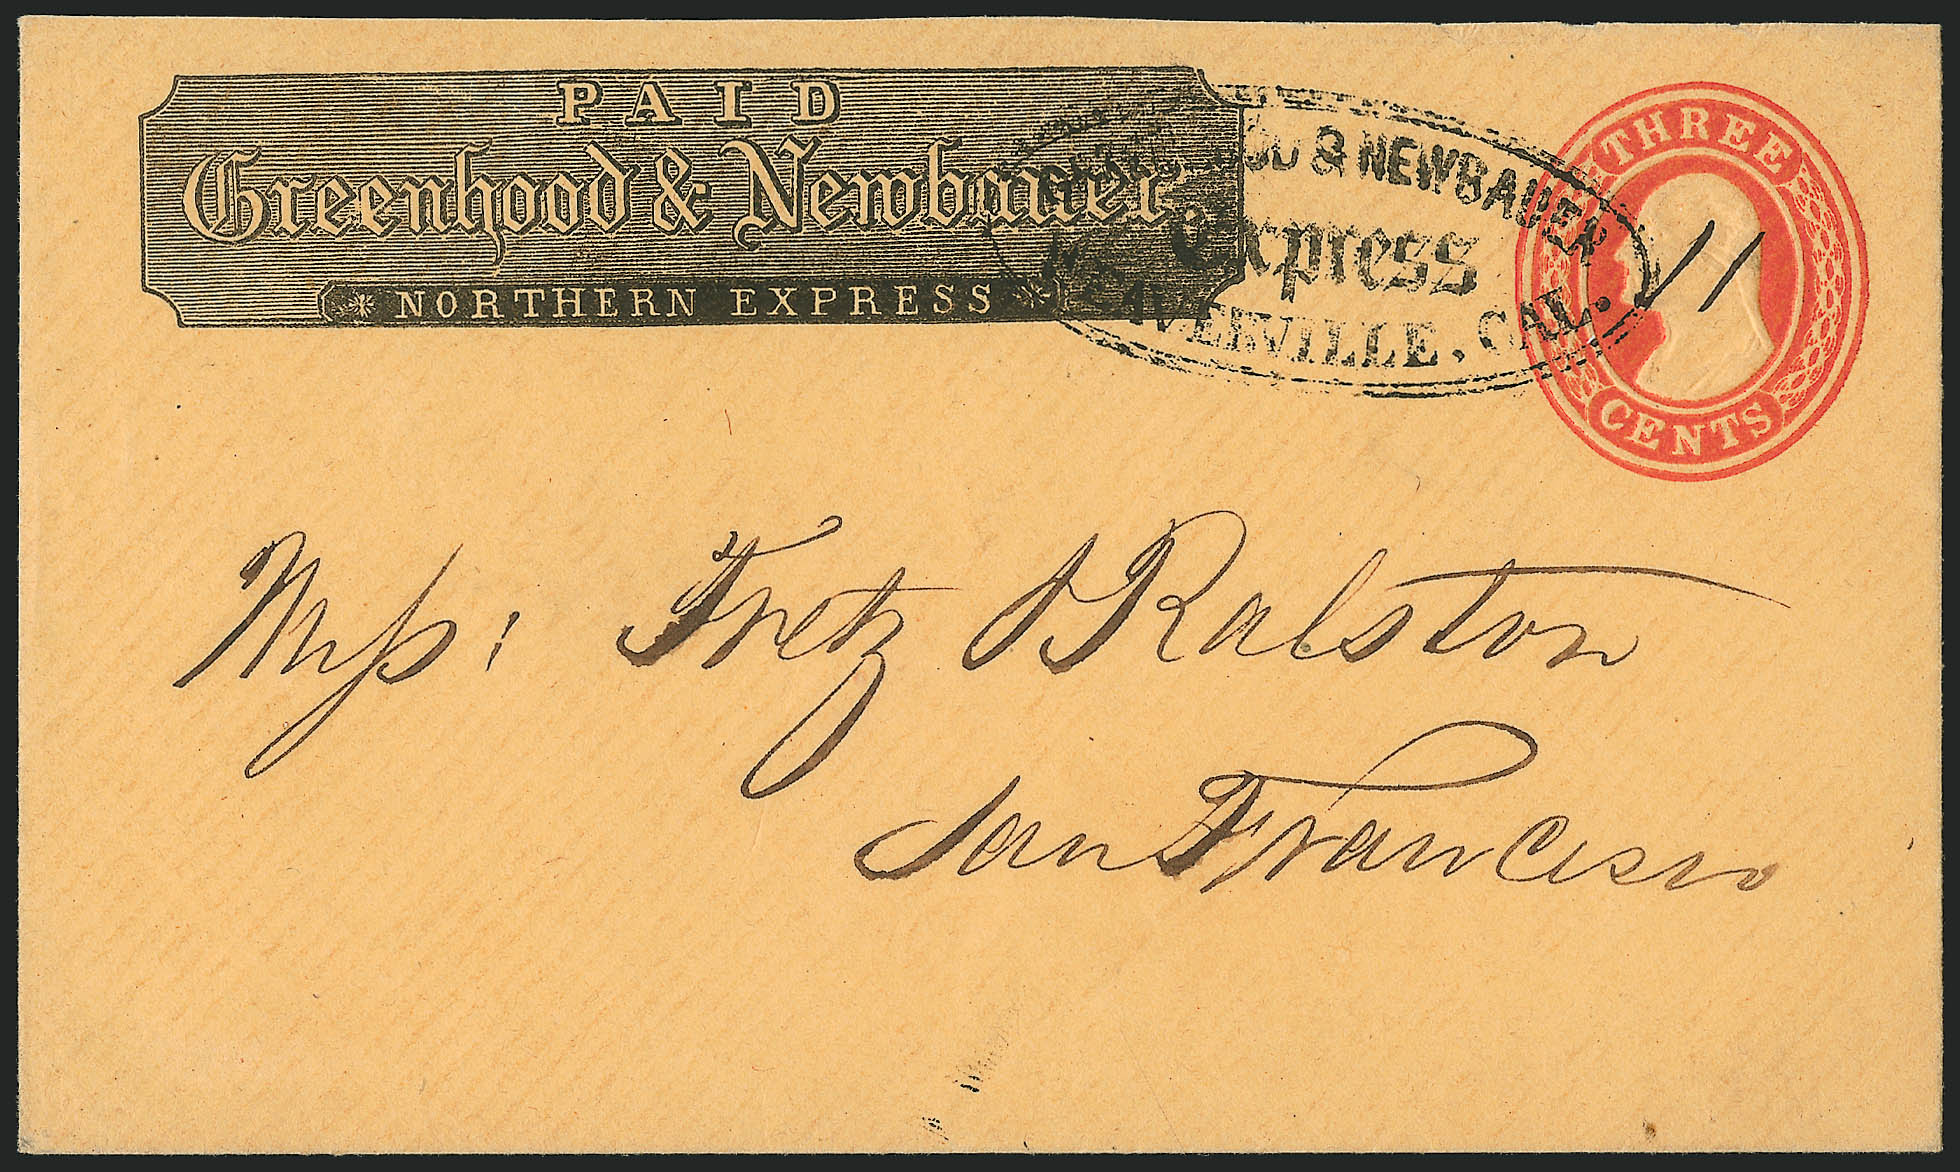 PAID
Greenhood & Newbauer.
NORTHERN EXPRESS
& NEWBAUER
Express
WEAVERVILLE, CAL.
THREE
CENTS
11
Messs: Fretz & Ralston
San Francisco